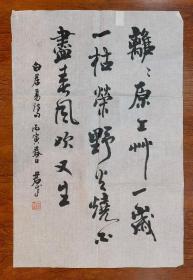 離〻原上艸一歲
一枯榮野火燒不
盡春風吹又生
白居易詩 丙寅春日